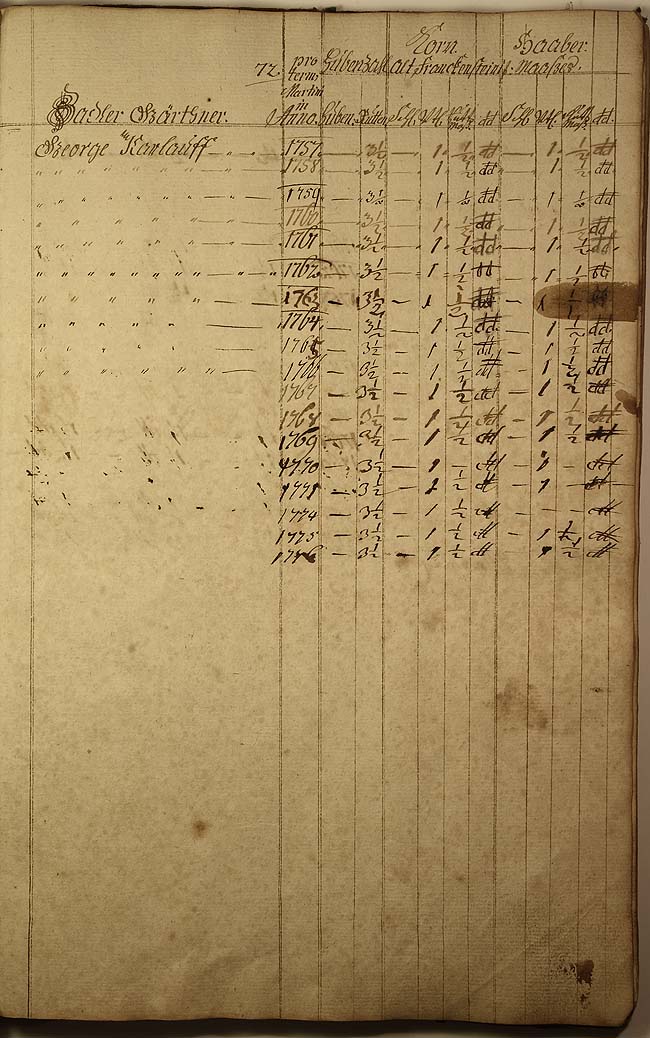 Korn. Haaber.
72. pro term: Martini in Anno. Hubenzahl alt Franckensteinis: Maaßes.
Zadler Gärthner. Huben. Rutten Schl. Vtl. dd Schl. Vtl. dd
George Karlauff 1757. — 3½ — 1 ½ dd — 1 ½ dd
" 1758 — 3½ — 1 ½ dd — 1 ½ dd
" 1759 — 3½ — 1 ½ dd — 1 ½ dd
" 1760 — 3½ — 1 ½ dd — 1 ½ dd
" 1761 — 3½ — 1 ½ dd — 1 ½ dd
" 1762 — 3½ — 1 ½ dd — 1 ½ dd
" 1763 — 3½ — 1 ½ dd — 1 ½ dd
" 1764 — 3½ — 1 ½ dd — 1 ½ dd
" 1765 — 3½ — 1 ½ dd — 1 ½ dd
" 1766 — 3½ — 1 ½ dd — 1 ½ dd
1767 — 3½ — 1 ½ dd — 1 ½ dd
1768 — 3½ — 1 ½ dd — 1 ½ dd
1769 — 3½ — 1 ½ dd — 1 ½ dd
1770 — 3½ — 1 — dd — 1 — dd
1771 — 3½ — 1 ½ dt — 1 — dt
1774 — 3½ — 1 ½ dt — — — dt
1775 — 3½ — 1 ½ dt — 1 ½ dt
1776 — 3½ — 1 ½ dt — 1 ½ dt